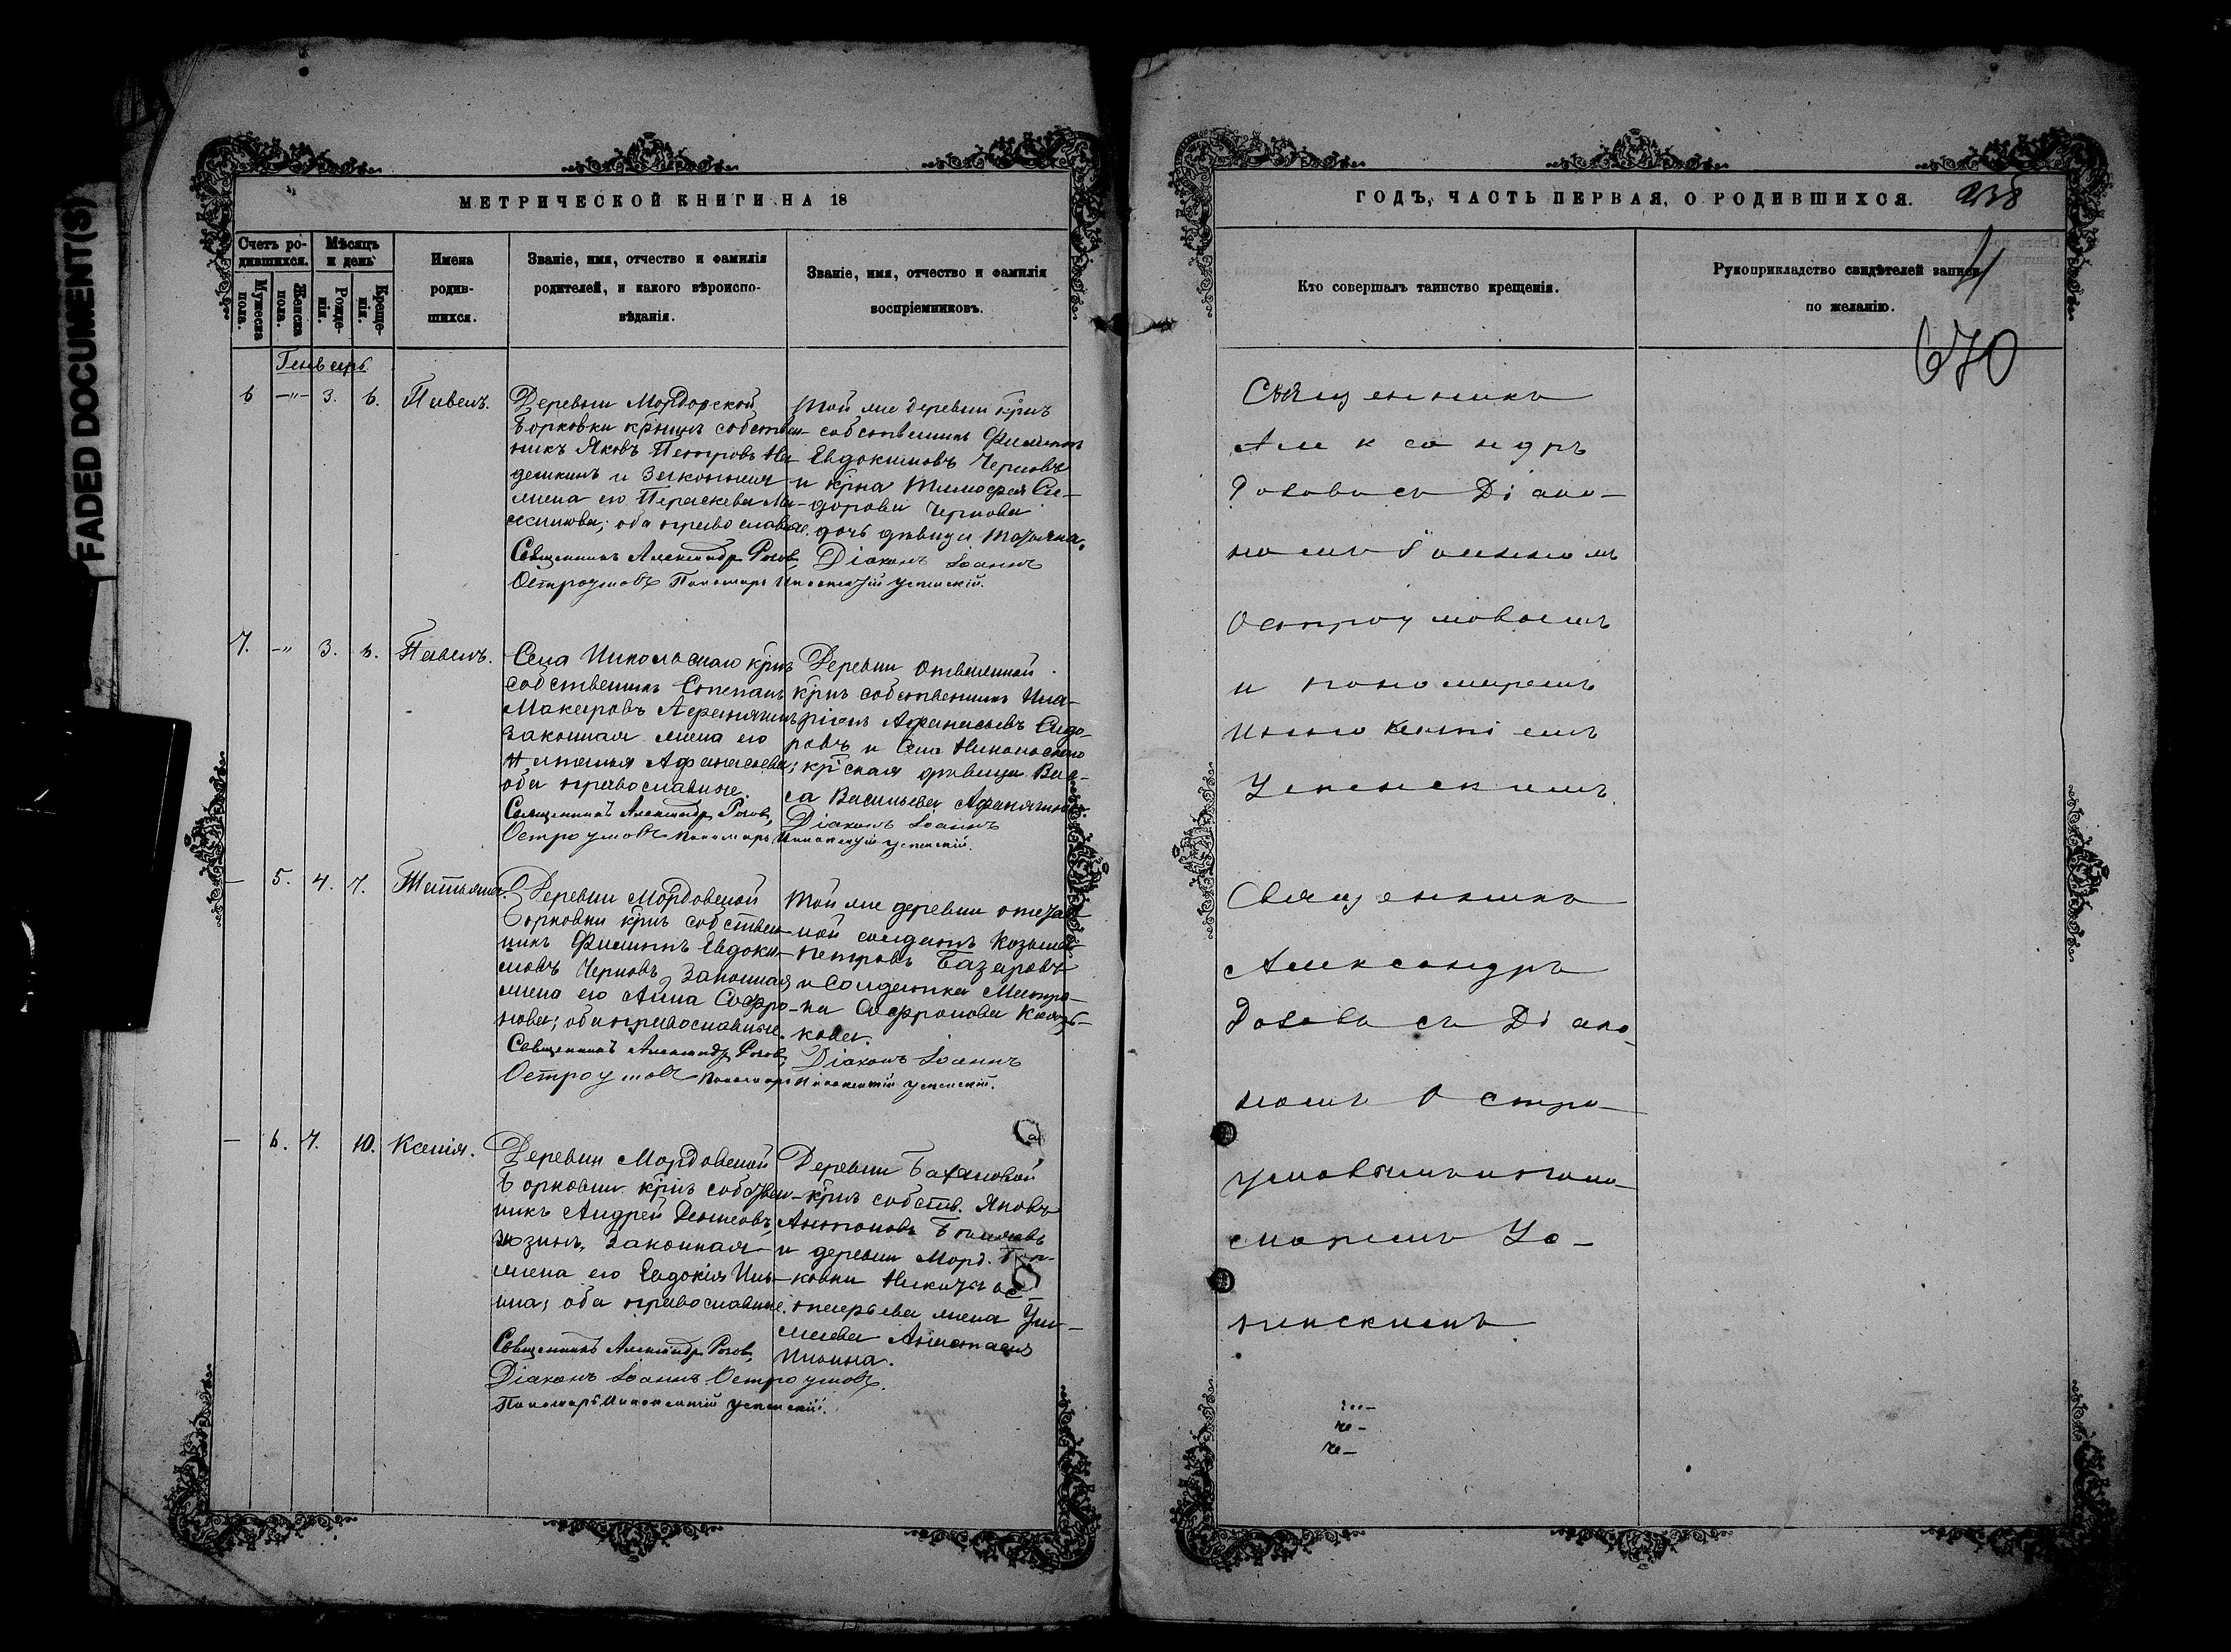 FADED DOCUMENT(S)
МЕТРИЧЕСКОЙ КНИГИ НА 18
Счетъ ро-
дившихся.
Мѣсяцъ
и день
Мужеска
пола.
Женска
пола.
Рожде-
нія.
Креще-
нія.
Имена
родив-
шихся.
Званіе, имя, отчество и фамилія
родителей, и какого вѣроиспо-
вѣданія.
Званіе, имя, отчество и фамилія
воспріемниковъ.
Генварь
6 -"- 3. 6. Павелъ.
Деревни Мордовской
Борковки крнинъ собствен-
никъ Яковъ Петровъ
и Законная
жена его Параскева
оба православные.
Священникъ Александръ Рогов,
Остроумовъ Пономарь
Той же деревни крнъ
собственникъ Филиппъ
Евдокимовъ Черновъ
и крна Тимофея Си-
дорова Чернова
дочь дѣвица Татьяна.
Діаконъ Іоаннъ
Иннокентій Успенскій.
7. -" 3. 6. Павелъ.
Села Никольскаго крнъ
собственникъ Степанъ
Макаровъ Афанягинъ
Законная жена его
Наталья Афанасьева;
оба православные.
Священникъ Александръ Рогов,
Остроумовъ Пономарь
Деревни
крнъ собственникъ Ила-
ріонъ Афанасьевъ Сидо-
ровъ и Села Никольскаго
крская дѣвица Вас-
са Васильева Афанягина.
Діаконъ Іоаннъ
Иннокентій Успенскій.
- 5. 4. 7. Татьяна.
Деревни Мордовской
Борковки крнъ собствен-
никъ Филиппъ Евдоки-
мовъ Черновъ, Законная
жена его Анна Софро-
нова; оба православные.
Священникъ Александръ Рогов,
Остроумовъ Пономарь
Той же деревни
солдатъ Козьма
Петровъ Базаровъ
и Солдатка Матро-
на Софронова
кова.
Діаконъ Іоаннъ
Иннокентій Успенскій.
- 6. 7. 10. Ксенія.
Деревни Мордовской
Борковки крнъ собствен-
никъ Андрей Денисовъ
Законная
жена его Евдокія Иль-
ина; оба православные.
Священникъ Александръ Рогов,
Діаконъ Іоаннъ Остроумовъ.
Пономарь Иннокентій Успенскій.
Деревни
крнъ собств. Яковъ
Антоновъ
и деревни Морд. Бор-
ковки
жена
Анастасія
Ильина.
ГОДЪ, ЧАСТЬ ПЕРВАЯ, О РОДИВШИХСЯ.
238
Кто совершалъ таинство крещенія.
Рукоприкладство свидѣтелей записи
по желанію.
670
Священникъ
Александръ
Роговъ съ Діако-
номъ Іоанномъ
Остроумовымъ
и пономаремъ
Иннокентіемъ
Успенскимъ
Священникъ
Александръ
Роговъ съ Діако-
номъ Остро-
умовымъ и поно-
маремъ Ус-
пенскимъ